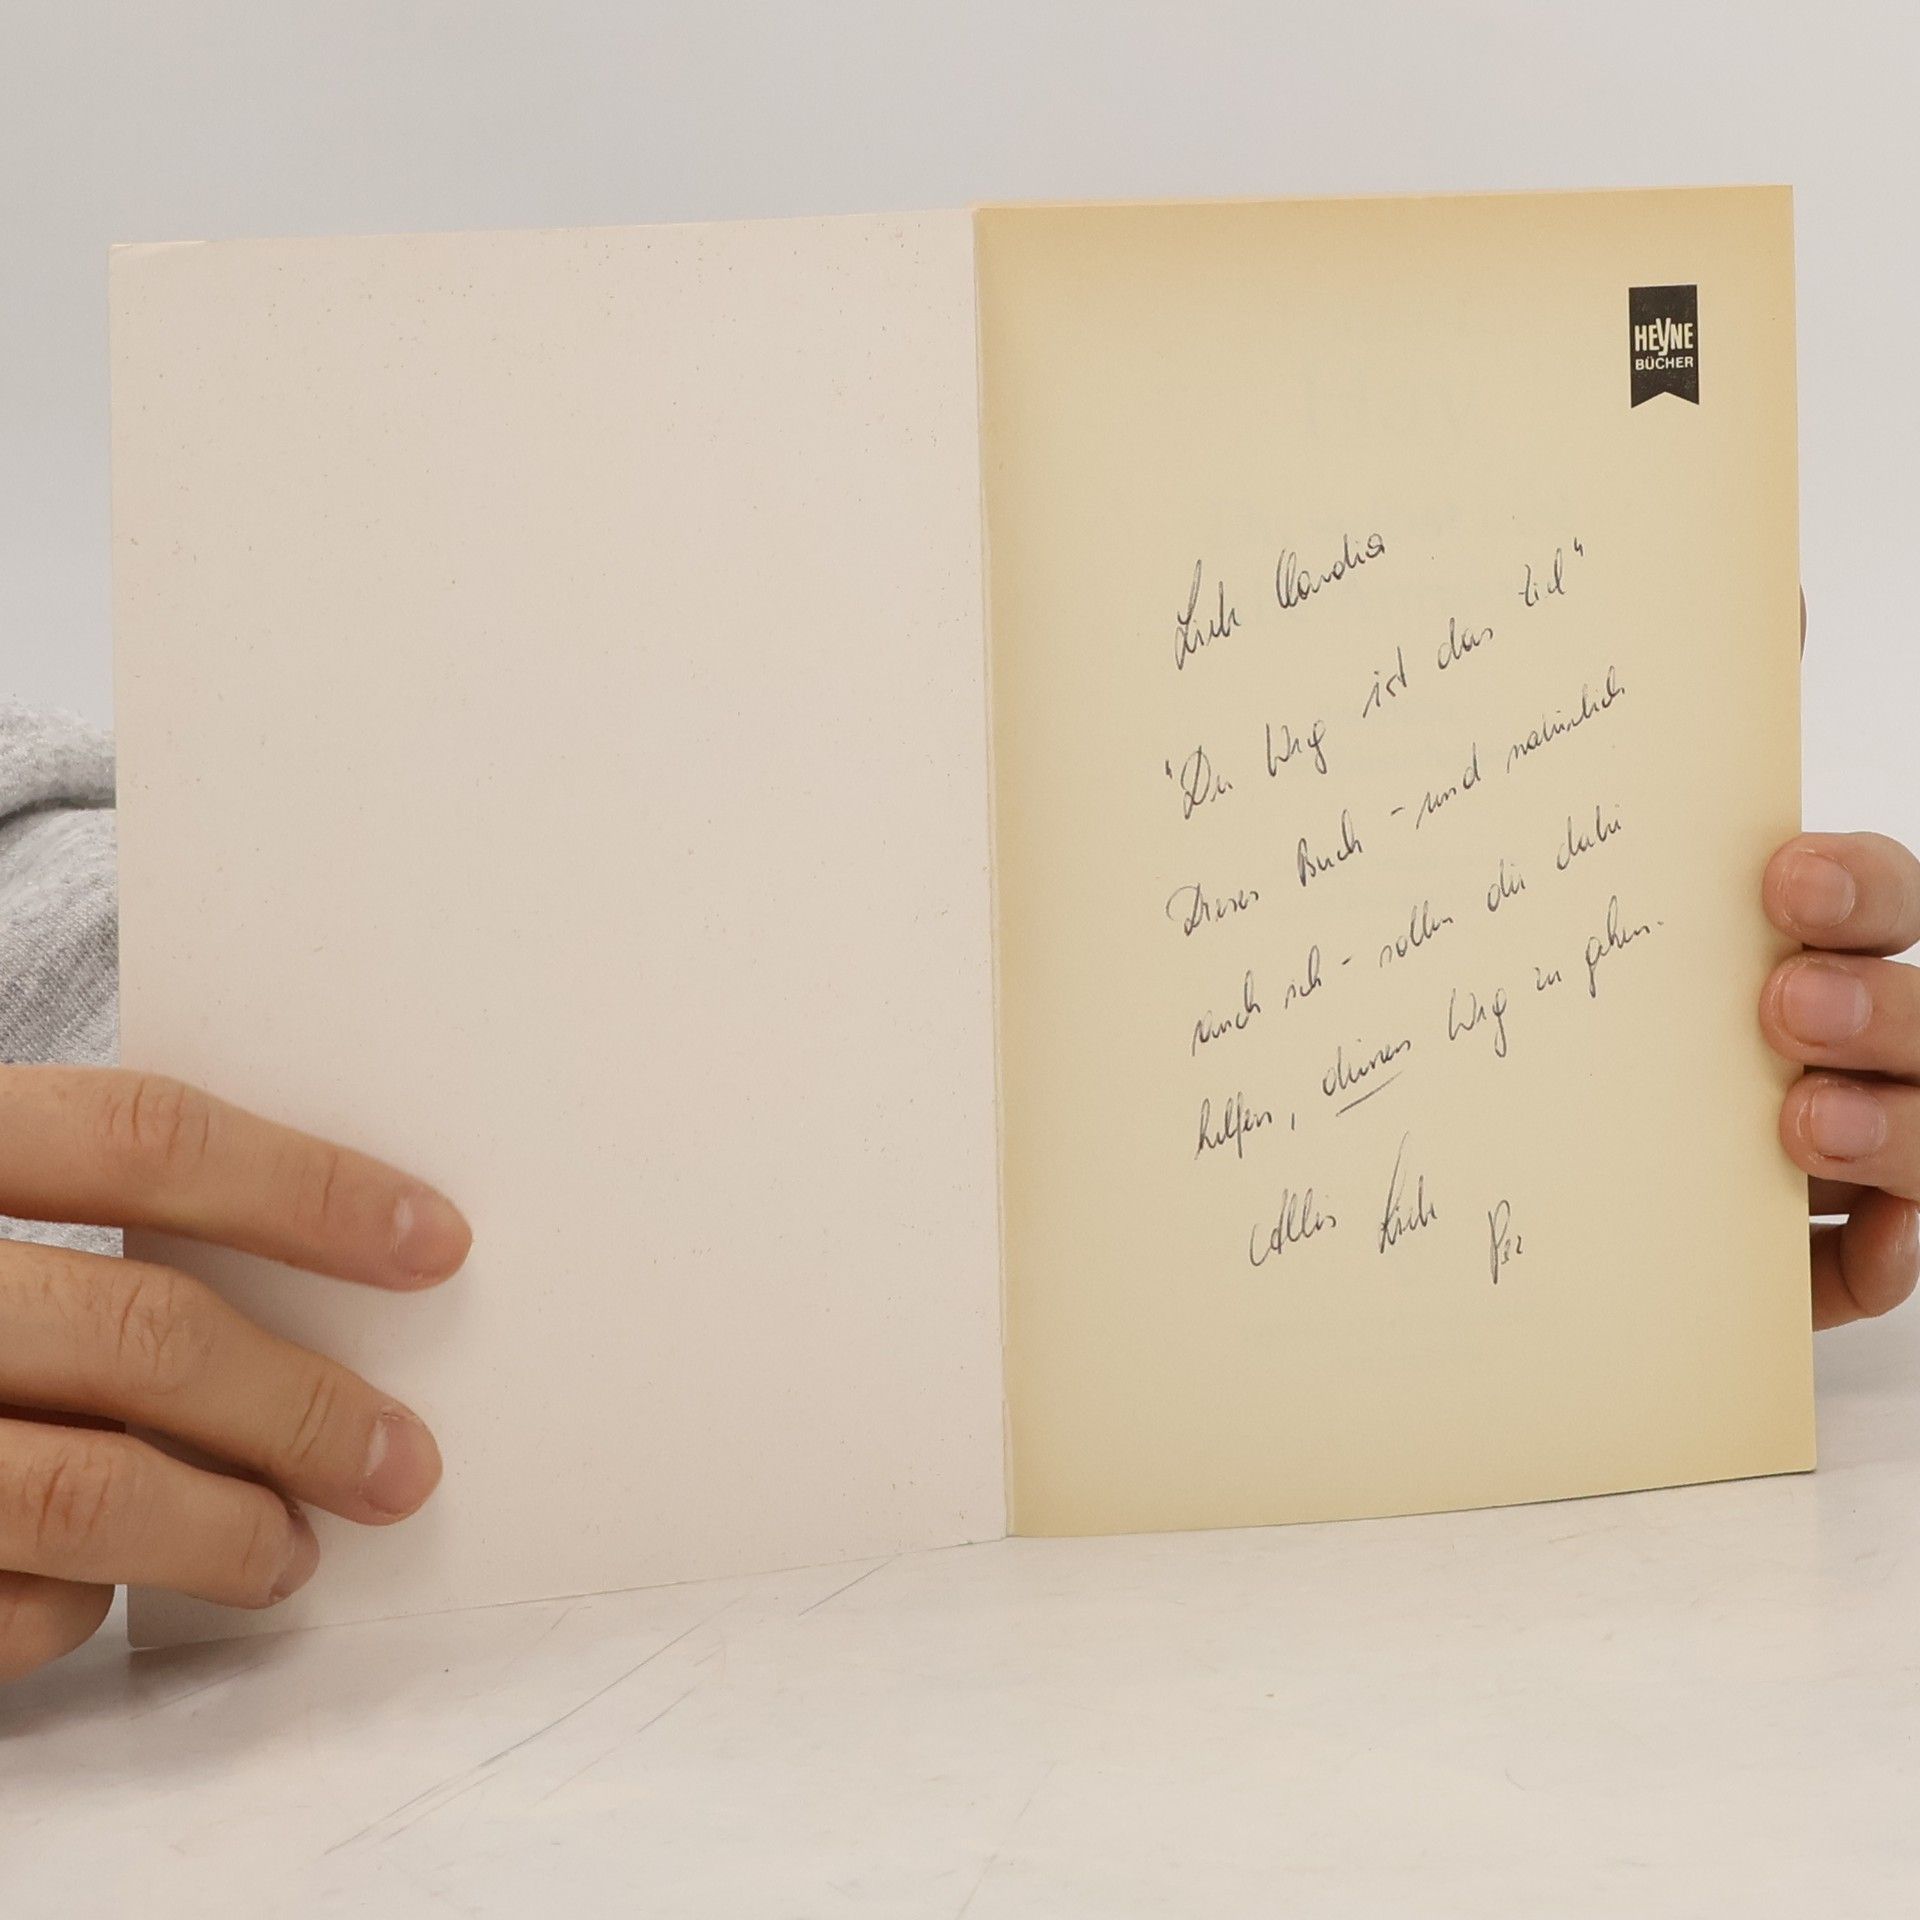 HEYNE
BÜCHER
Liebe Claudia
"Der Weg ist das Ziel"
Dieses Buch - und natürlich
auch ich - sollen dir dabei
helfen, deinen Weg zu gehen.
Alles Liebe